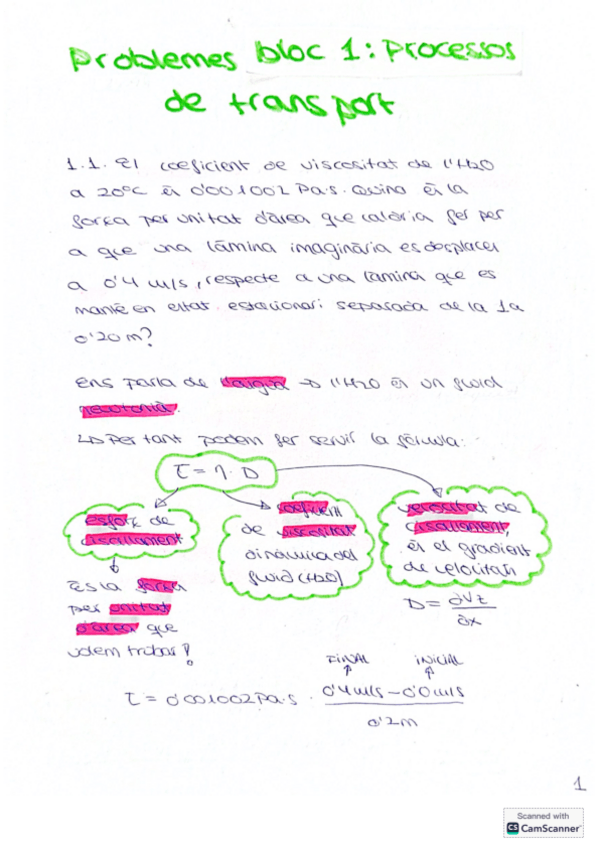 Problemes bloc 1: Processos
de transport
1.1. El coeficient de viscositat de l'H2O
a 20°C és 0'001002 Pa·s. Quina és la
força per unitat d'àrea que caldria fer per
a que una làmina imaginària es desplacés
a 0'4 m/s, respecte a una làmina que es
manté en estat estacionari separada de la 1a
0'20 m?
Ens parla de l'aigua → l'H2O és un fluid
newtonià.
↳ Per tant podem fer servir la fórmula:
τ = η · D
esforç de
cisallament
coeficient
de viscositat
dinàmica del
fluid (H2O)
velocitat de
cisallament,
és el gradient
de velocitats
És la força
per unitat
d'àrea que
volem trobar!
D = ∂Vz / ∂x
FINAL INICIAL
τ = 0'001002 Pa·s · 0'4 m/s - 0'0 m/s
0'2 m
1
Scanned with
CS CamScanner